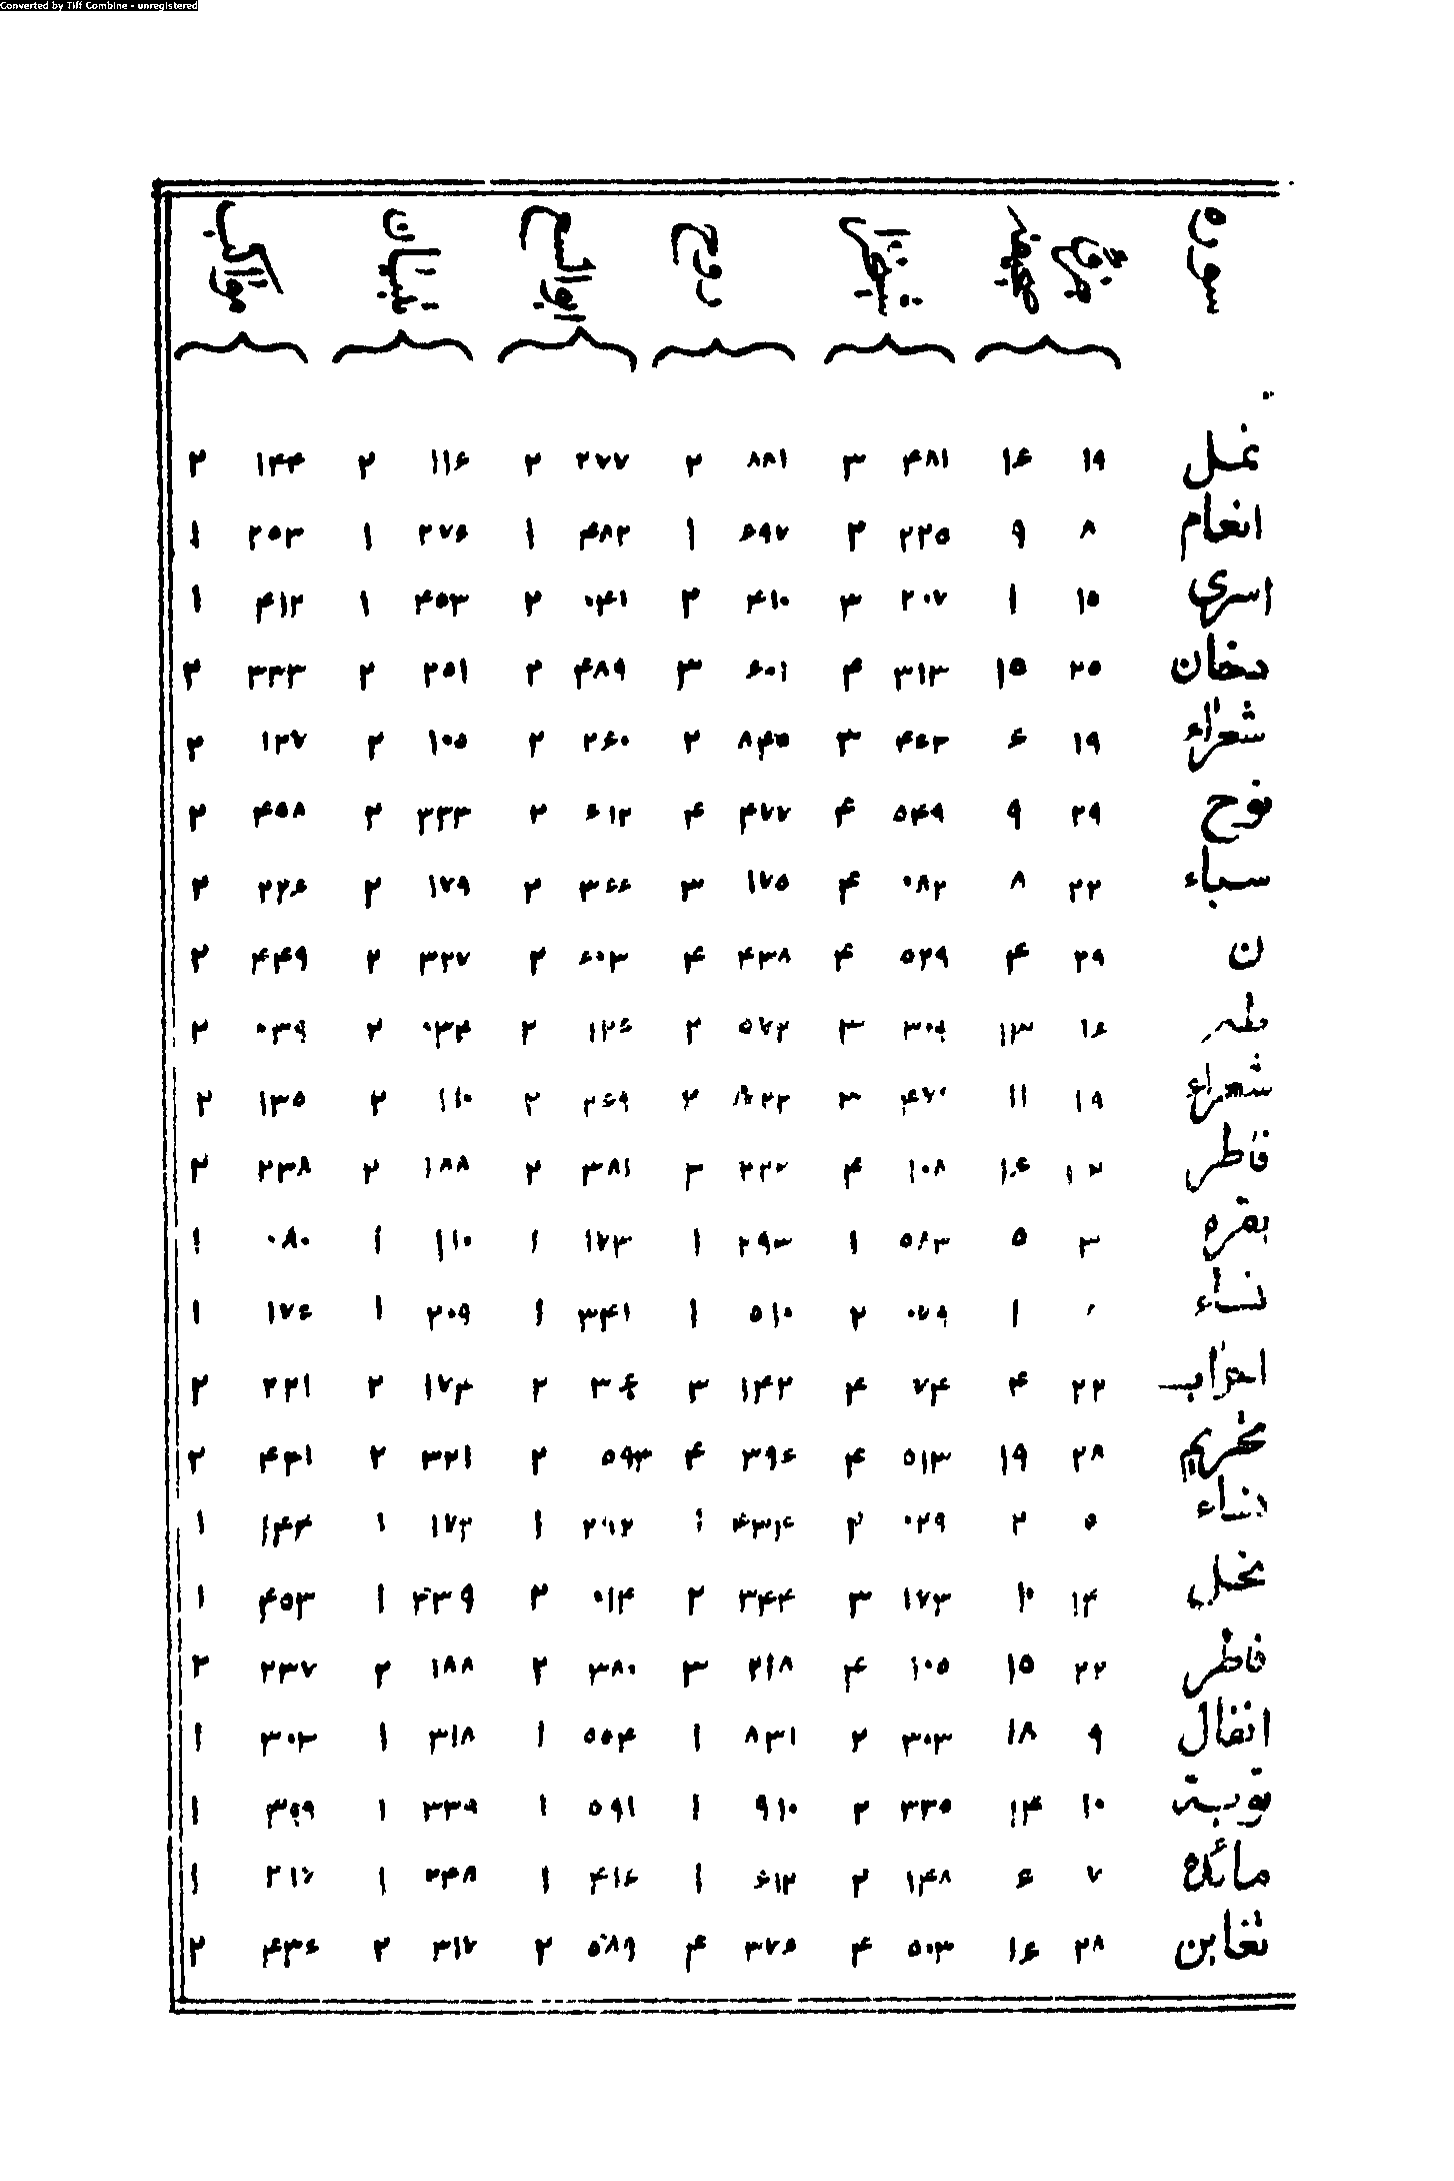 Converted by Tiff Combine - unregistered
سوره
نمل ۱۹ ۱۶ ۴۸۱ ۳ ۸۸۱ ۲ ۲۷۷ ۲ ۱۱۶ ۲ ۱۴۴ ۲
انعام ۸ ۹ ۲۲۵ ۲ ۶۹۷ ۱ ۴۸۲ ۱ ۲۷۶ ۱ ۲۵۳ ۱
اسری ۱۵ ۱ ۲۰۷ ۳ ۴۱۰ ۲ ۰۴۱ ۲ ۴۵۳ ۱ ۴۱۲ ۱
دخان ۲۵ ۱۵ ۳۱۳ ۴ ۶۰۱ ۳ ۴۸۹ ۲ ۲۵۱ ۲ ۳۳۳ ۲
شعراء ۱۹ ۶ ۴۶۳ ۳ ۸۴۵ ۲ ۲۶۰ ۲ ۱۰۵ ۲ ۱۲۷ ۲
نوح ۲۹ ۹ ۵۴۹ ۴ ۴۷۷ ۴ ۶۱۲ ۲ ۳۳۳ ۲ ۴۵۸ ۲
سباء ۲۲ ۸ ۰۸۲ ۴ ۱۷۵ ۳ ۳۶۶ ۲ ۱۷۹ ۲ ۲۲۶ ۲
ن ۲۹ ۴ ۵۲۹ ۴ ۴۳۸ ۴ ۶۰۳ ۲ ۳۲۷ ۲ ۴۴۹ ۲
طه ۱۶ ۱۳ ۳۰۹ ۳ ۵۷۲ ۲ ۱۲۶ ۲ ۰۳۴ ۲ ۰۳۹ ۲
شعراء ۱۹ ۱۱ ۴۷۰ ۳ ۲ ۲۶۹ ۲ ۱۱۰ ۲ ۱۳۵ ۲
فاطر ۱۶ ۱۰۸ ۴ ۲۲۷ ۳ ۳۸۱ ۲ ۱۸۸ ۲ ۲۳۸ ۲
بقره ۳ ۵ ۵۶۳ ۱ ۲۹۳ ۱ ۱۷۳ ۱ ۱۱۰ ۱ ۰۸۰ ۱
نساء ۱ ۰۷۹ ۲ ۵۱۰ ۱ ۳۴۱ ۱ ۲۰۹ ۱ ۱۷۶ ۱
احزاب ۲۲ ۴ ۷۴ ۴ ۱۴۲ ۳ ۲ ۱۷۴ ۲ ۲۲۱ ۲
تحریم ۲۸ ۱۹ ۵۱۳ ۴ ۳۹۶ ۴ ۵۹۳ ۲ ۳۲۱ ۲ ۴۳۱ ۲
نساء ۵ ۲ ۰۲۹ ۲ ۴۳۴ ۱ ۱ ۱۷۳ ۱ ۱۴۴ ۱
نحل ۱۴ ۱۰ ۱۷۳ ۳ ۳۴۴ ۲ ۰۱۴ ۲ ۴۳۹ ۱ ۴۵۳ ۱
فاطر ۲۲ ۱۵ ۱۰۵ ۴ ۲۱۸ ۳ ۳۸۰ ۲ ۱۸۸ ۲ ۲۳۷ ۲
انفال ۹ ۱۸ ۳۰۳ ۲ ۸۳۱ ۱ ۵۵۴ ۱ ۳۱۸ ۱ ۳۰۳ ۱
توبة ۱۰ ۱۴ ۳۳۵ ۲ ۹۱۰ ۱ ۵۹۱ ۱ ۳۳۹ ۱ ۱
مائده ۷ ۶ ۱۴۸ ۲ ۶۱۲ ۱ ۴۱۶ ۱ ۲۴۸ ۱ ۲۱۶ ۱
تغابن ۲۸ ۱۶ ۵۰۳ ۴ ۳۷۶ ۴ ۵۸۹ ۲ ۳۱۷ ۲ ۴۳۶ ۲